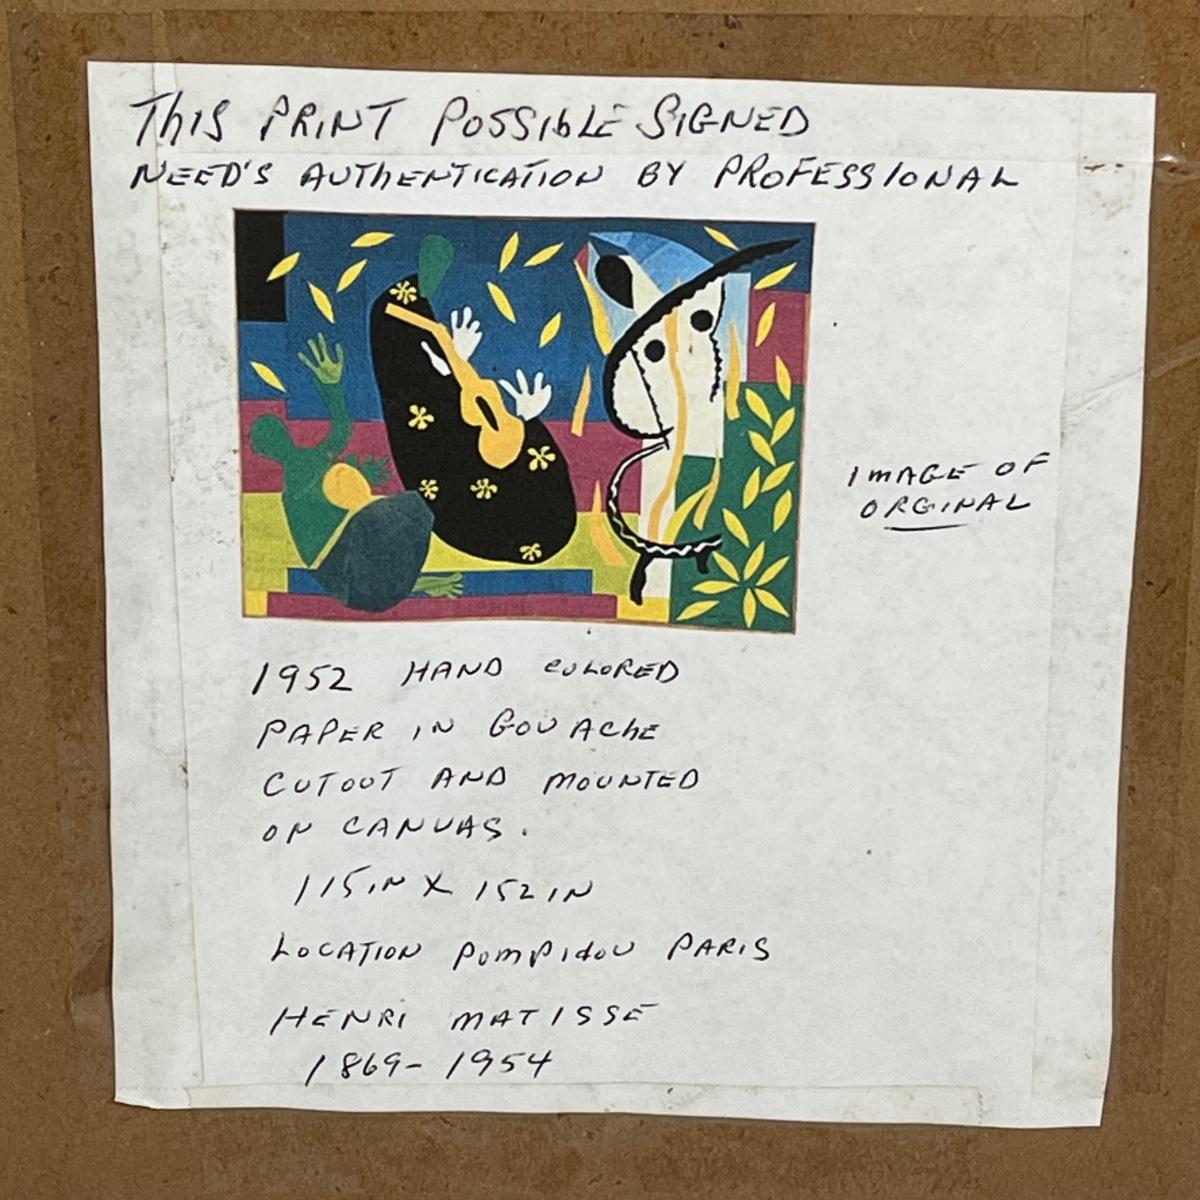 THIS PRINT POSSIBLE SIGNED
NEED'S AUTHENTICATION BY PROFESSIONAL
IMAGE OF
ORGINAL
1952 HAND COLORED
PAPER IN GOUACHE
CUTOUT AND MOUNTED
ON CANVAS.
115 IN X 152 IN
LOCATION POMPIDOU PARIS
HENRI MATISSE
1869-1954